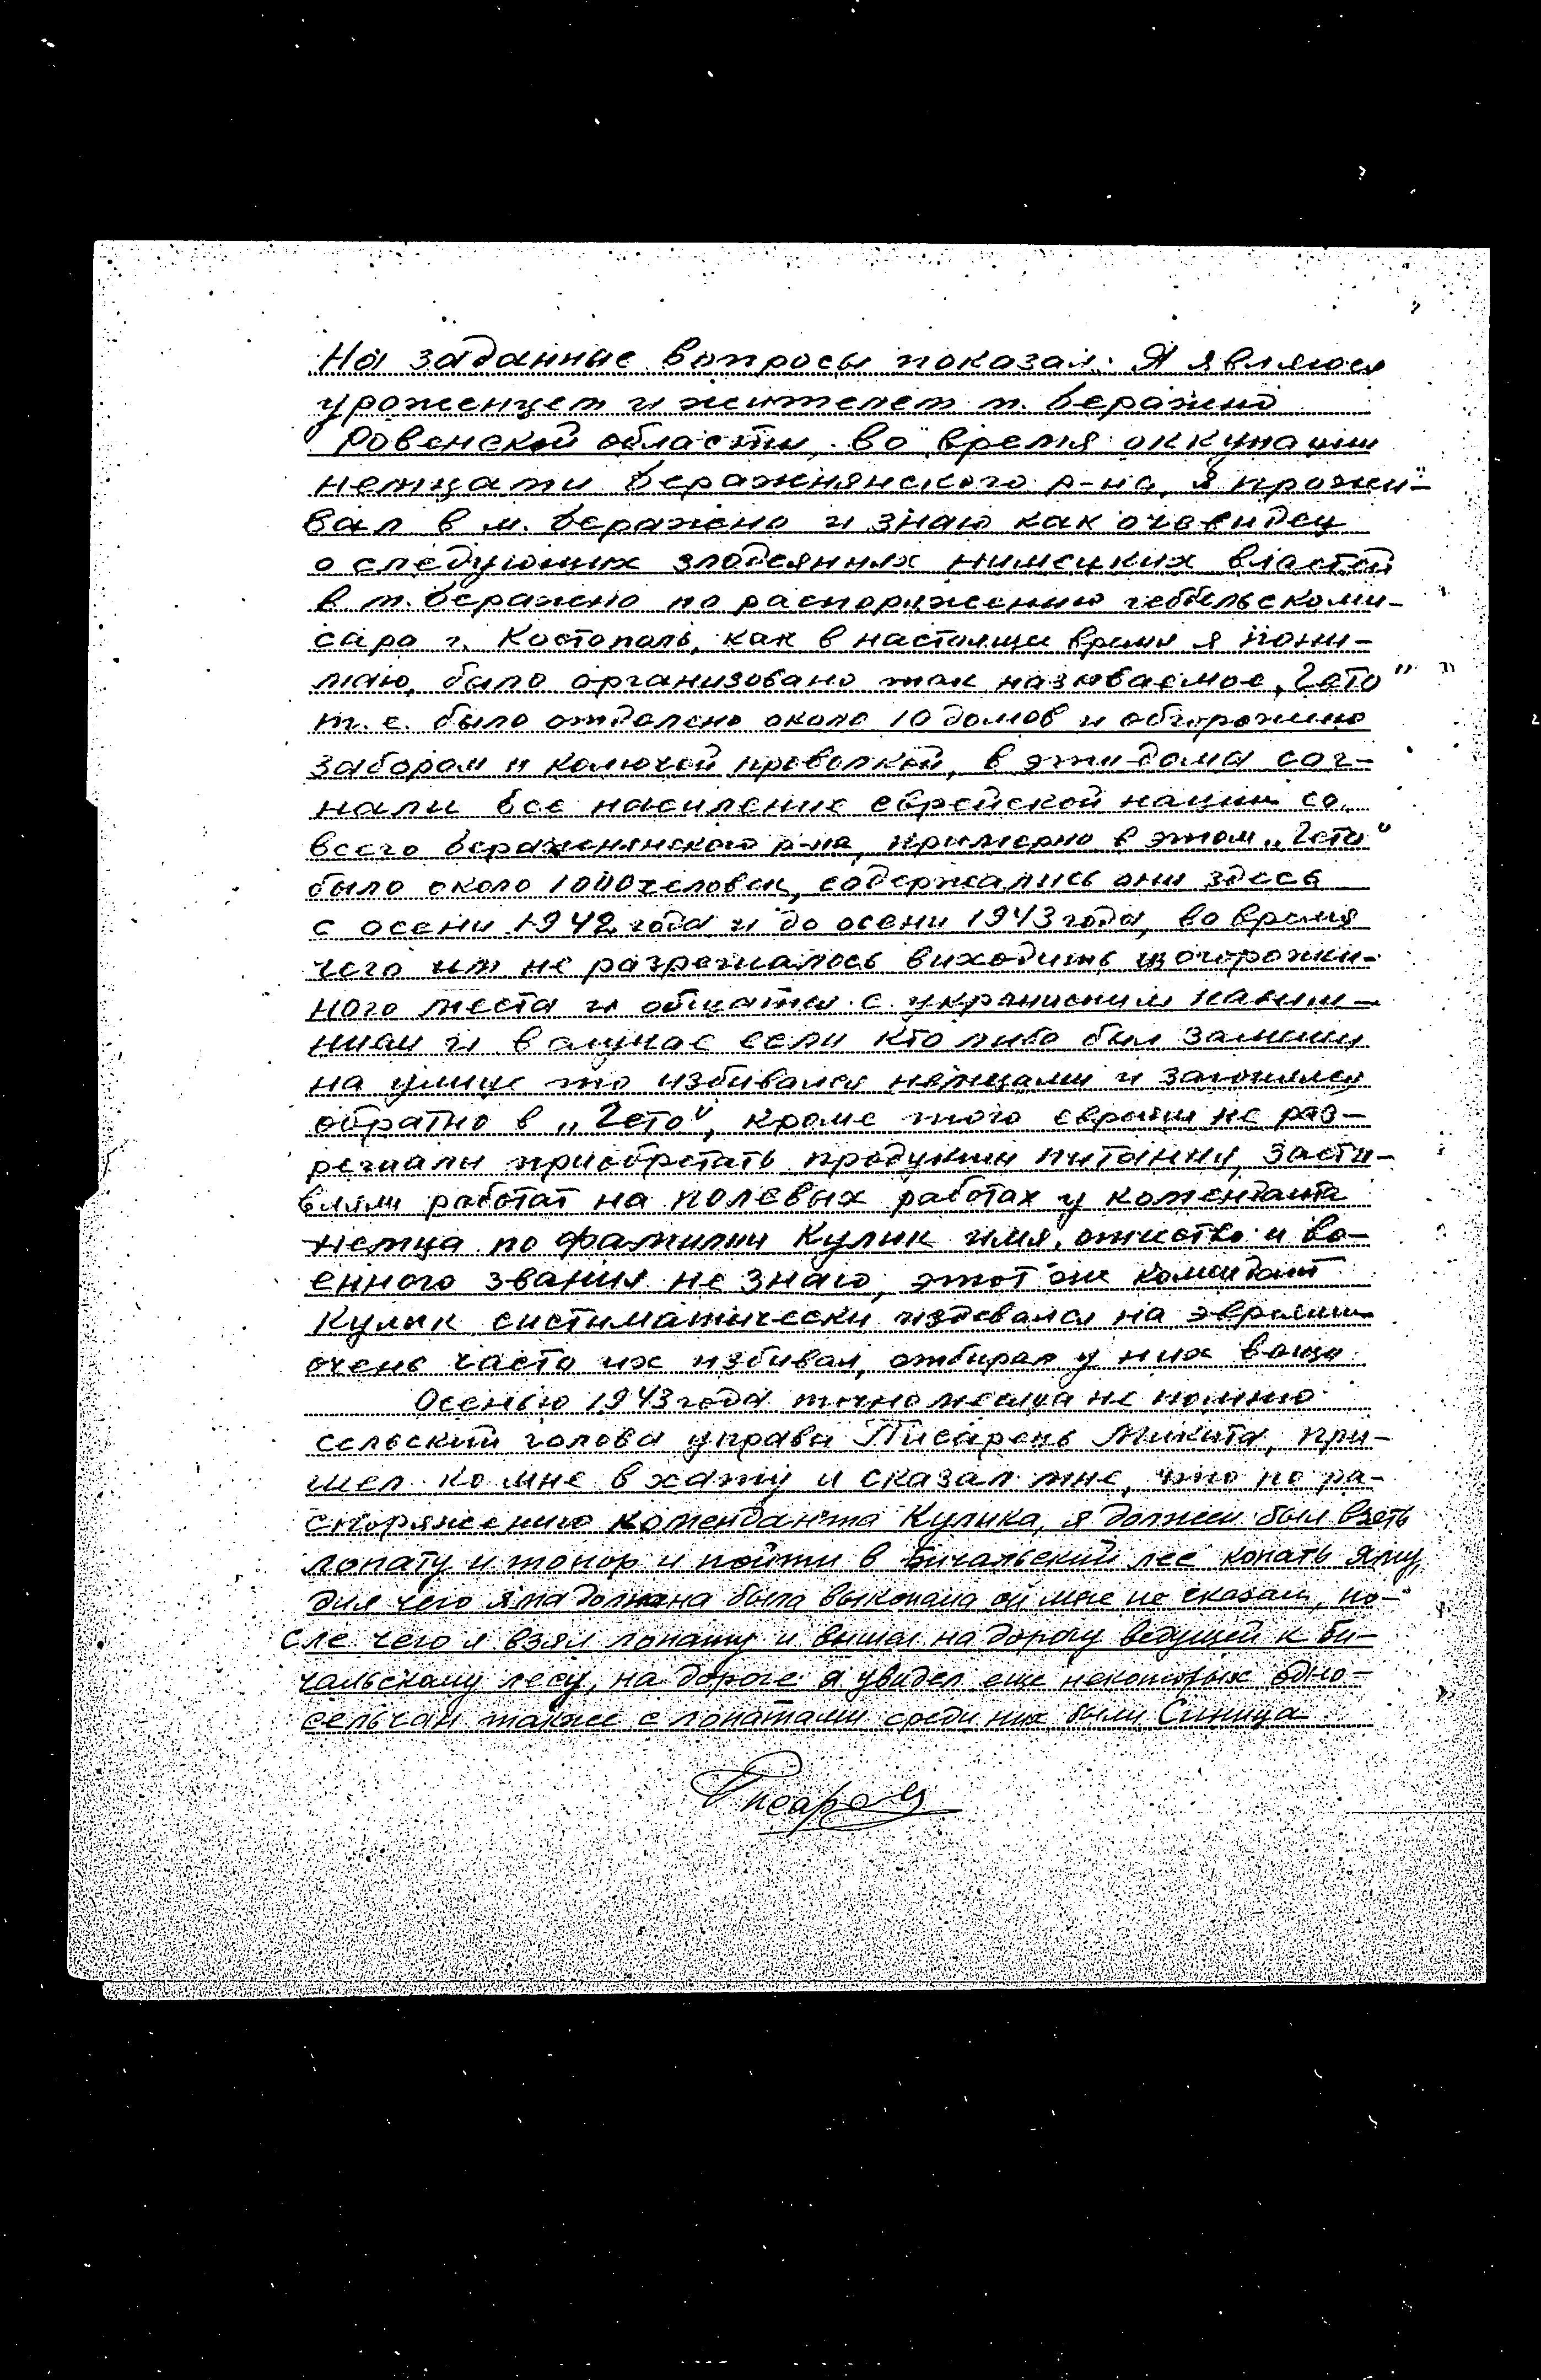 На заданные вопросы показал: Я являюся
уроженцем и жителем м. Беражно
Ровенской области, во время оккупации
немцами Беражнянского р-на, я прожи-
вал в м. Беражно и знаю как очевидец
о следующих злодеяниях нимецких властей
в м. Беражно по распоряжению гебельскоми-
сара г. Костополь, как в настоящее время я пони-
маю, было организовано так называемое „Гето"
т.е. было отдалено около 10 домов и обгорожино
забором и колючой проволкой, в эти дома сог-
нали все насиление еврейской нации со
всего Беражнянского р-на, примерно в этом „Гето"
было около 1000 человек, содержались они здесь
с осени 1942 года и до осени 1943 года, во время
чего им не разрешалось виходить из огорожи-
ного места и общатся с украинским насили-
нием и в случае если кто либо был замечин
на улице то избивался немцами и загонялся
обратно в „Гето", кроме того евреям не раз-
решали приобретать продукты питания, заста-
вляли работат на полевых работах у коменданта
немца по фамилии Кулик имя, отчество и во-
енного звания не знаю, этот же комендант
Кулик систиматически издевался на эвреями
очень часто их избивал, отбирал у них вещи
Осенью 1943 года точно месяца не помню
сельский голова управы Писарець Микита, при-
шел ко мне в хату и сказал мне, что по ра-
споряжению коменданта Кулика, я должен был взеть
лопату и топор и пойти в Бичальский лес копать яму,
для чего яма должна была выкопана он мне не сказал, по-
сле чего я взял лопату и вышел на дорогу ведущей к Би-
чальскому лесу, на дороге я увидел еще некоторых одно-
сельчан также с лопатами среди них были Синица
Писарец